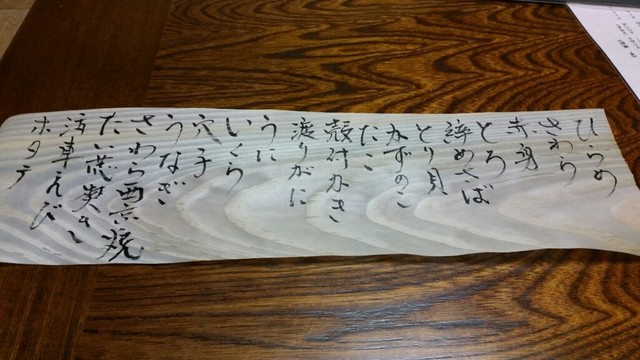 ひらめ
さわら
赤身
とろ
締めさば
とり貝
かずのこ
たこ
殻付かき
渡りがに
うに
いくら
穴子
うなぎ
さわら西京焼
たい荒炊き
活車えび
ホタテ